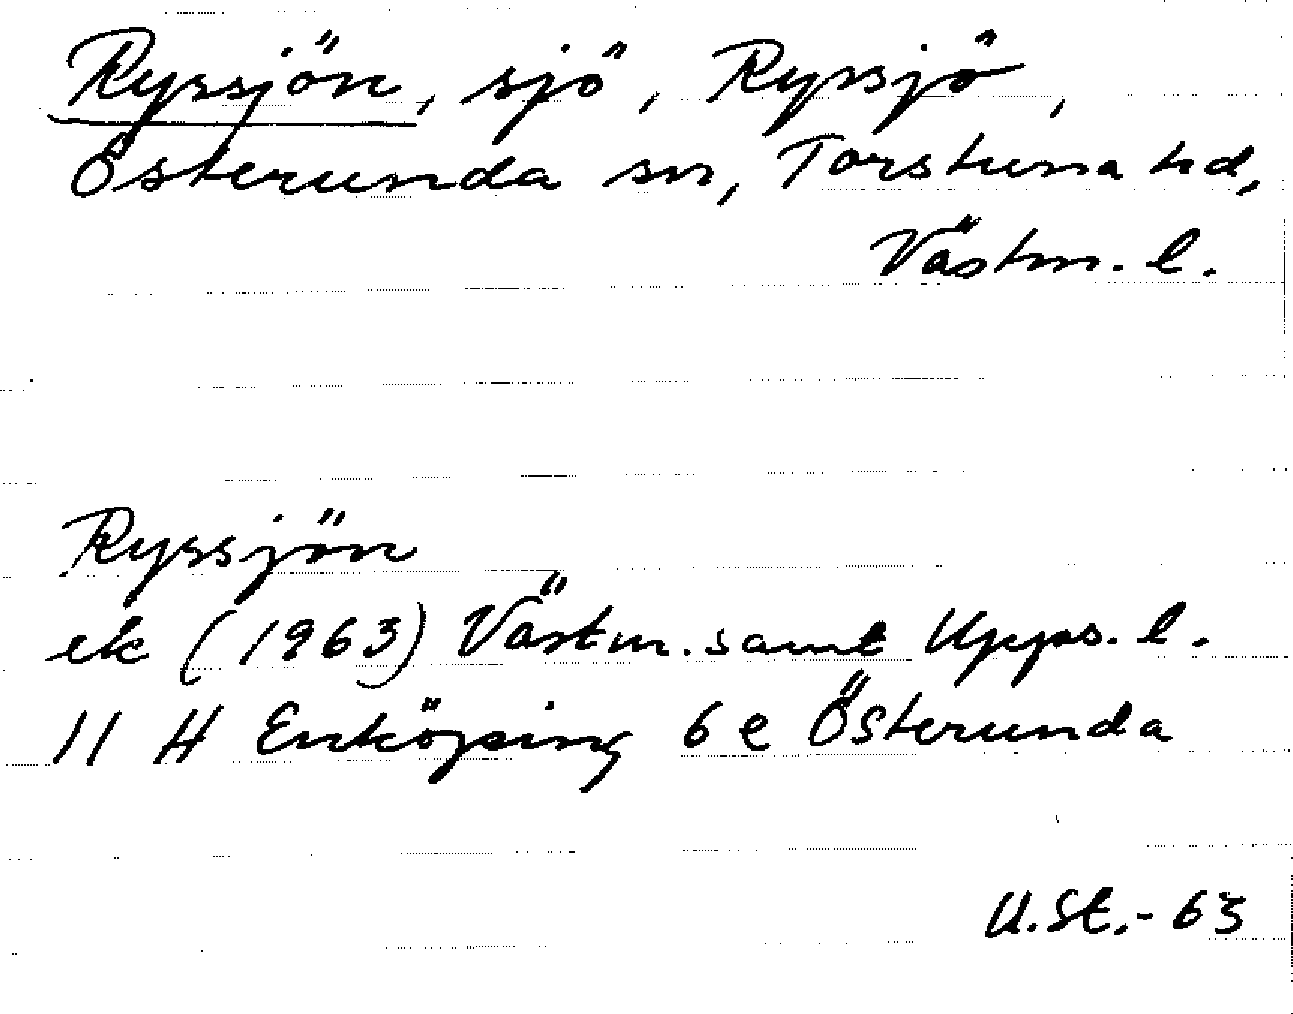 Ryssjön, sjö, Ryssjö,
Österunda sn, Torstuna hd,
Västm. l.
Ryssjön
ek (1963) Västm. samt Upps. l.
11 H Enköping 6 e Österunda
U.St.-63